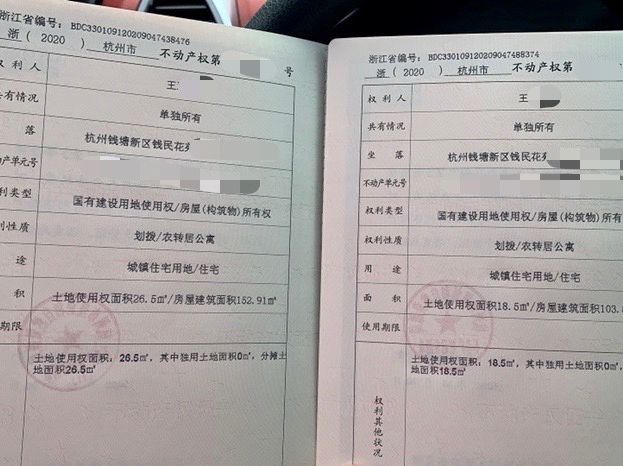 浙江省编号：BDC330109120209047438476
浙（2020）杭州市 不动产权第 号
权利人 王
共有情况 单独所有
落 杭州钱塘新区钱民花
不动产单元号
权利类型 国有建设用地使用权/房屋(构筑物)所有权
利性质 划拨/农转居公寓
途 城镇住宅用地/住宅
积 土地使用权面积26.5㎡/房屋建筑面积152.91㎡
用期限
土地使用权面积：26.5㎡，其中独用土地面积0㎡，分摊土
地面积26.5㎡
浙江省编号：BDC330109120209047488374
浙（2020）杭州市 不动产权第
权利人 王
共有情况 单独所有
坐落 杭州钱塘新区钱民花
不动产单元号
权利类型 国有建设用地使用权/房屋(构筑物)所有
权利性质 划拨/农转居公寓
用途 城镇住宅用地/住宅
面积 土地使用权面积18.5㎡/房屋建筑面积103.8
使用期限
土地使用权面积：18.5㎡，其中独用土地面积0㎡，
地面积18.5㎡
权利其他状况